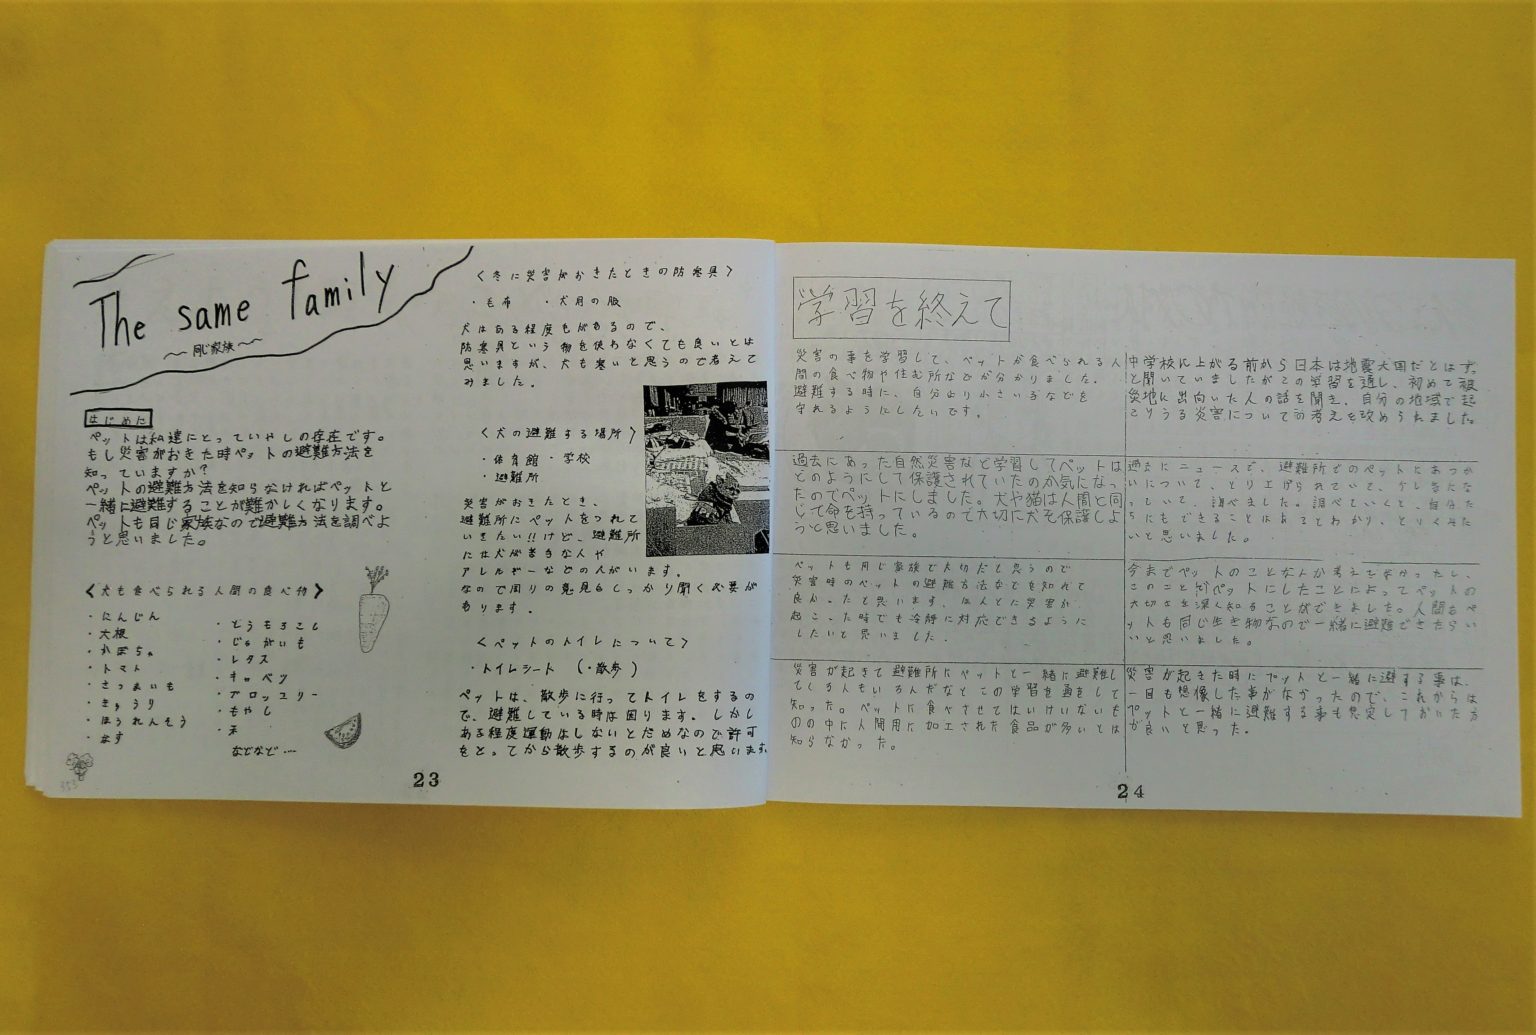 The same family
～同じ家族～
はじめに
ペットは私達にとっていやしの存在です。
もし災害がおきた時ペットの避難方法を
知っていますか?
ペットの避難方法を知らなければペットと
一緒に避難することが難かしくなります。
ペットも同じ家族なので避難方法を調べよ
うと思いました。
〈犬も食べられる人間の食べ物〉
・にんじん
・大根
・かぼちゃ
・トマト
・さつまいも
・きゅうり
・ほうれんそう
・なす
・とうもろこし
・じゃがいも
・レタス
・キャベツ
・ブロッコリー
・もやし
・米
などなど…
〈冬に災害がおきたときの防寒具〉
・毛布 ・犬用の服
犬はある程度毛があるので、
防寒具という物を使わなくても良いとは
思いますが、犬も寒いと思うので考えて
みました。
〈犬の避難する場所〉
・体育館 ・学校
・避難所
災害がおきたとき、
避難所にペットをつれて
いきたい!!けど、避難所
には犬が苦手な人や
アレルギーなどの人がいます。
なので周りの意見もしっかり聞く必要が
あります。
〈ペットのトイレについて〉
・トイレシート (・散歩)
ペットは、散歩に行ってトイレをするの
で、避難している時は困ります。しかし
ある程度運動はしないとだめなので許可
をとってから散歩するのが良いと思います。
23
学習を終えて
災害の事を学習して、ペットが食べられる人
間の食べ物や住む所などが分かりました。
避難する時に、自分より小さい子などを
守れるようにしたいです。
中学校に上がる前から日本は地震大国だとは
と聞いていましたがこの学習を通し、初めて被
災地に出向いた人の話を聞き、自分の地域で起
こりうる災害について考えを改められました。
過去にあった自然災害など学習してペットは
どのようにして保護されていたのか気になっ
たのでペットにしました。犬や猫は人間と同
じで命を持っているので大切に犬を保護しよ
うと思いました。
過去にニュースで、避難所でのペットのあつか
いについて、とり上げられていて、
っていて、調べました。調べていくと、自分た
ちにもできることはあるとわかり、とりくみた
いと思いました。
ペットも同じ家族で大切だと思うので
災害時のペットの避難方法などを知れて
良かったと思います。ほんとに災害が
起こった時でも冷静に対応できるように
したいと思いました。
今までペットのことなんか考えてなかったし、
このこと ペットにしたことによってペットの
大切さを深く知ることができました。人間もペ
ットも同じ生き物なので一緒に避難できたらい
いと思いました。
災害が起きて避難所にペットと一緒に避難し
てくる人もいるんだなとこの学習を通をして
知った。ペットに食べさせてはいけいないも
のの中に人間用に加工された食品が多いとは
知らなかった。
災害が起きた時にペットと一緒に避する事は、
一回も想像した事がなかったので、これからは
ペットと一緒に避難する事も想定しておいた方
が良いと思った。
24